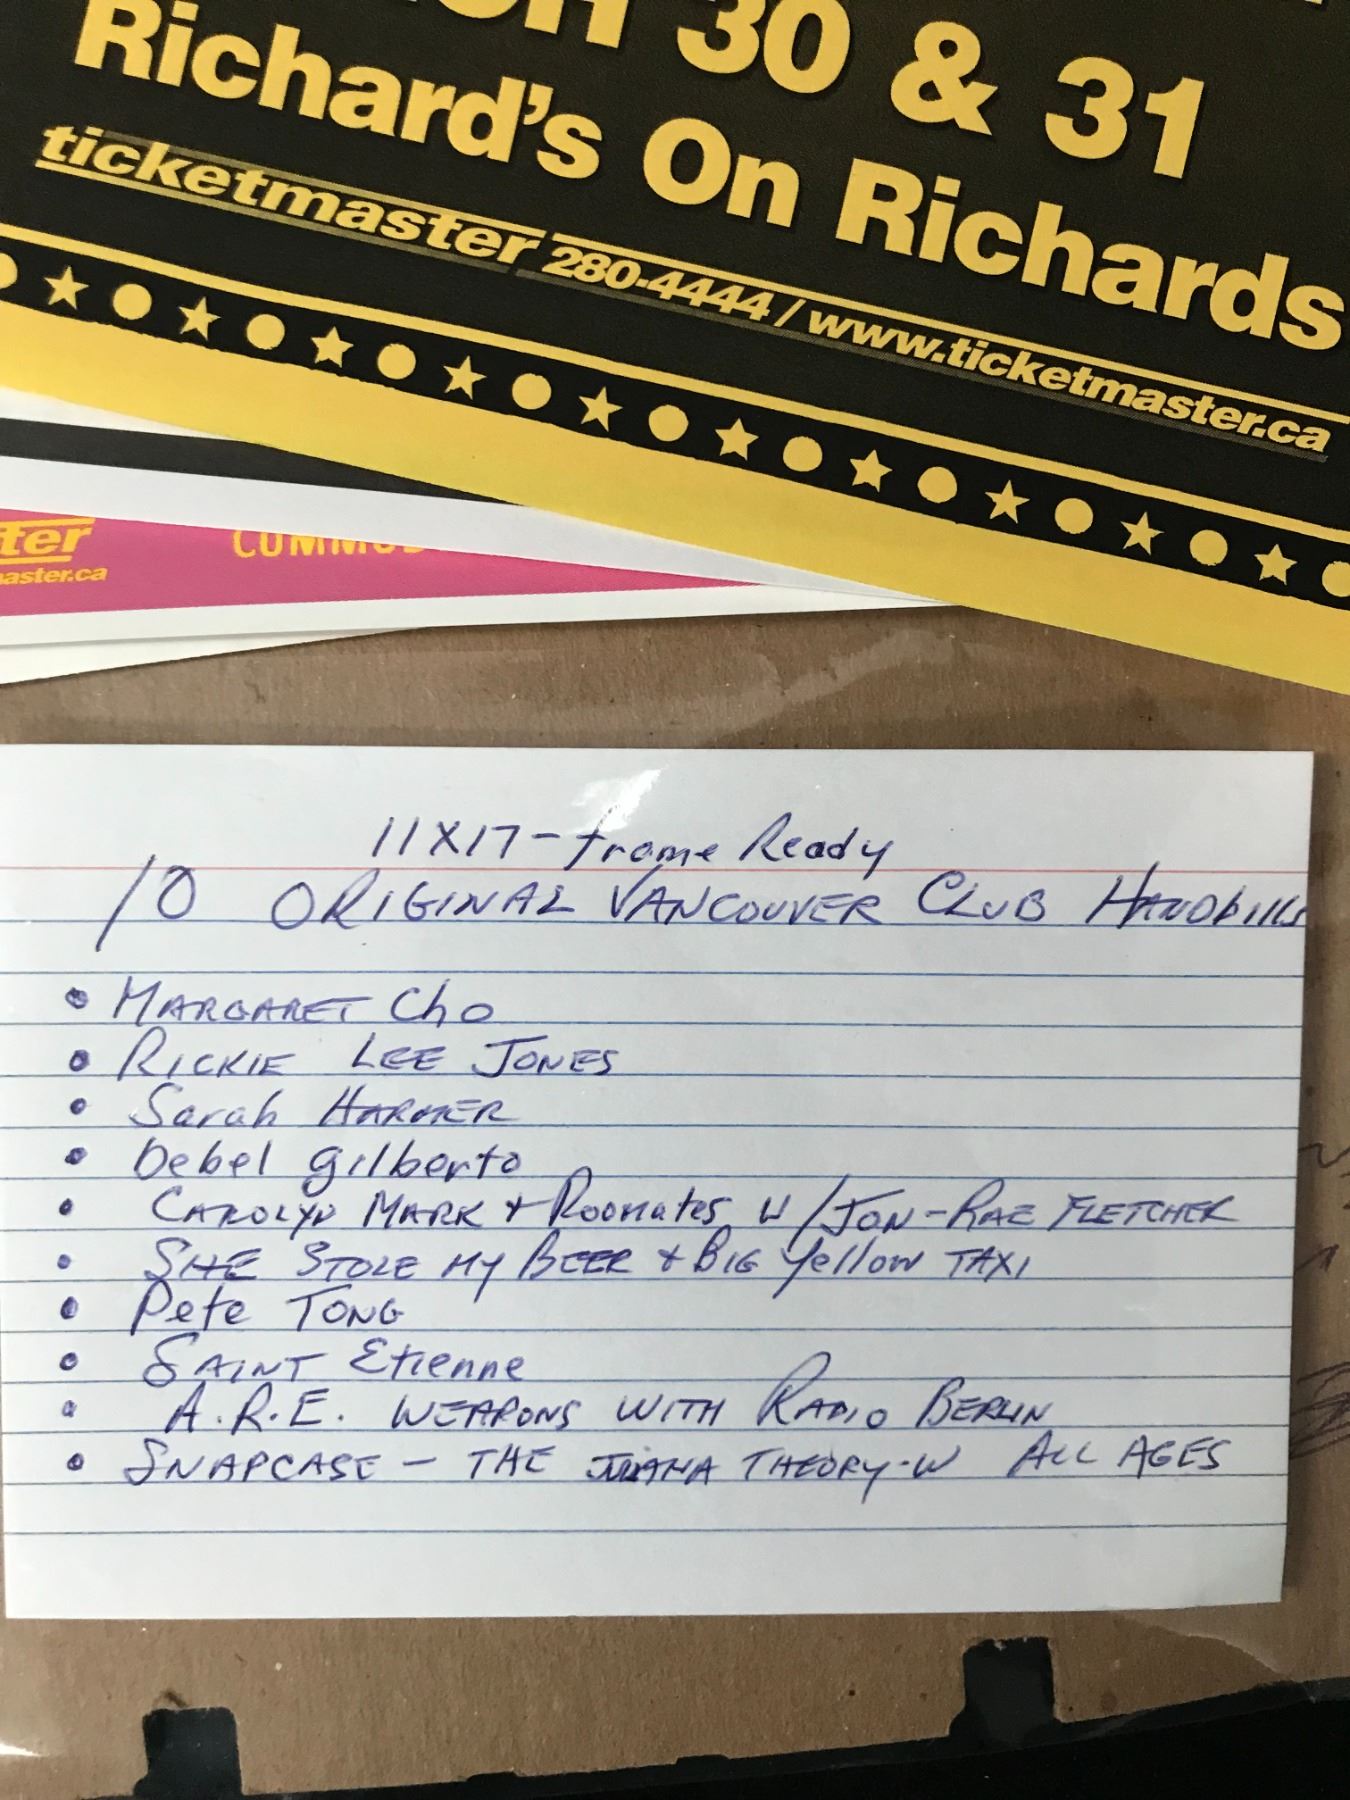 30 & 31
Richard's On Richards
ticketmaster 280-4444 / www.ticketmaster.ca
ter
aster.ca
11X17 - frame Ready
10 ORIGINAL VANCOUVER CLUB HANDbills
• MARGARET Cho
• RICKIE LEE JONES
• Sarah HARMER
• Bebel gilberto
• CAROLYN MARK + Roomates W/JON-RAE FLETCHER
• SHE STOLE MY BEER + BIG Yellow TAXI
• Pete TONG
• SAINT Etienne
• A.R.E. WEAPONS WITH RADIO BERLIN
• SNAPCASE - THE JULIANA THEORY-W ALL AGES